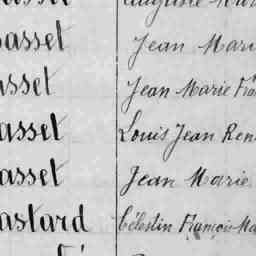 asset Jean Mari
asset Jean Marie Fra
asset Louis Jean Ren
asset Jean Marie
astard Célestin François Ma